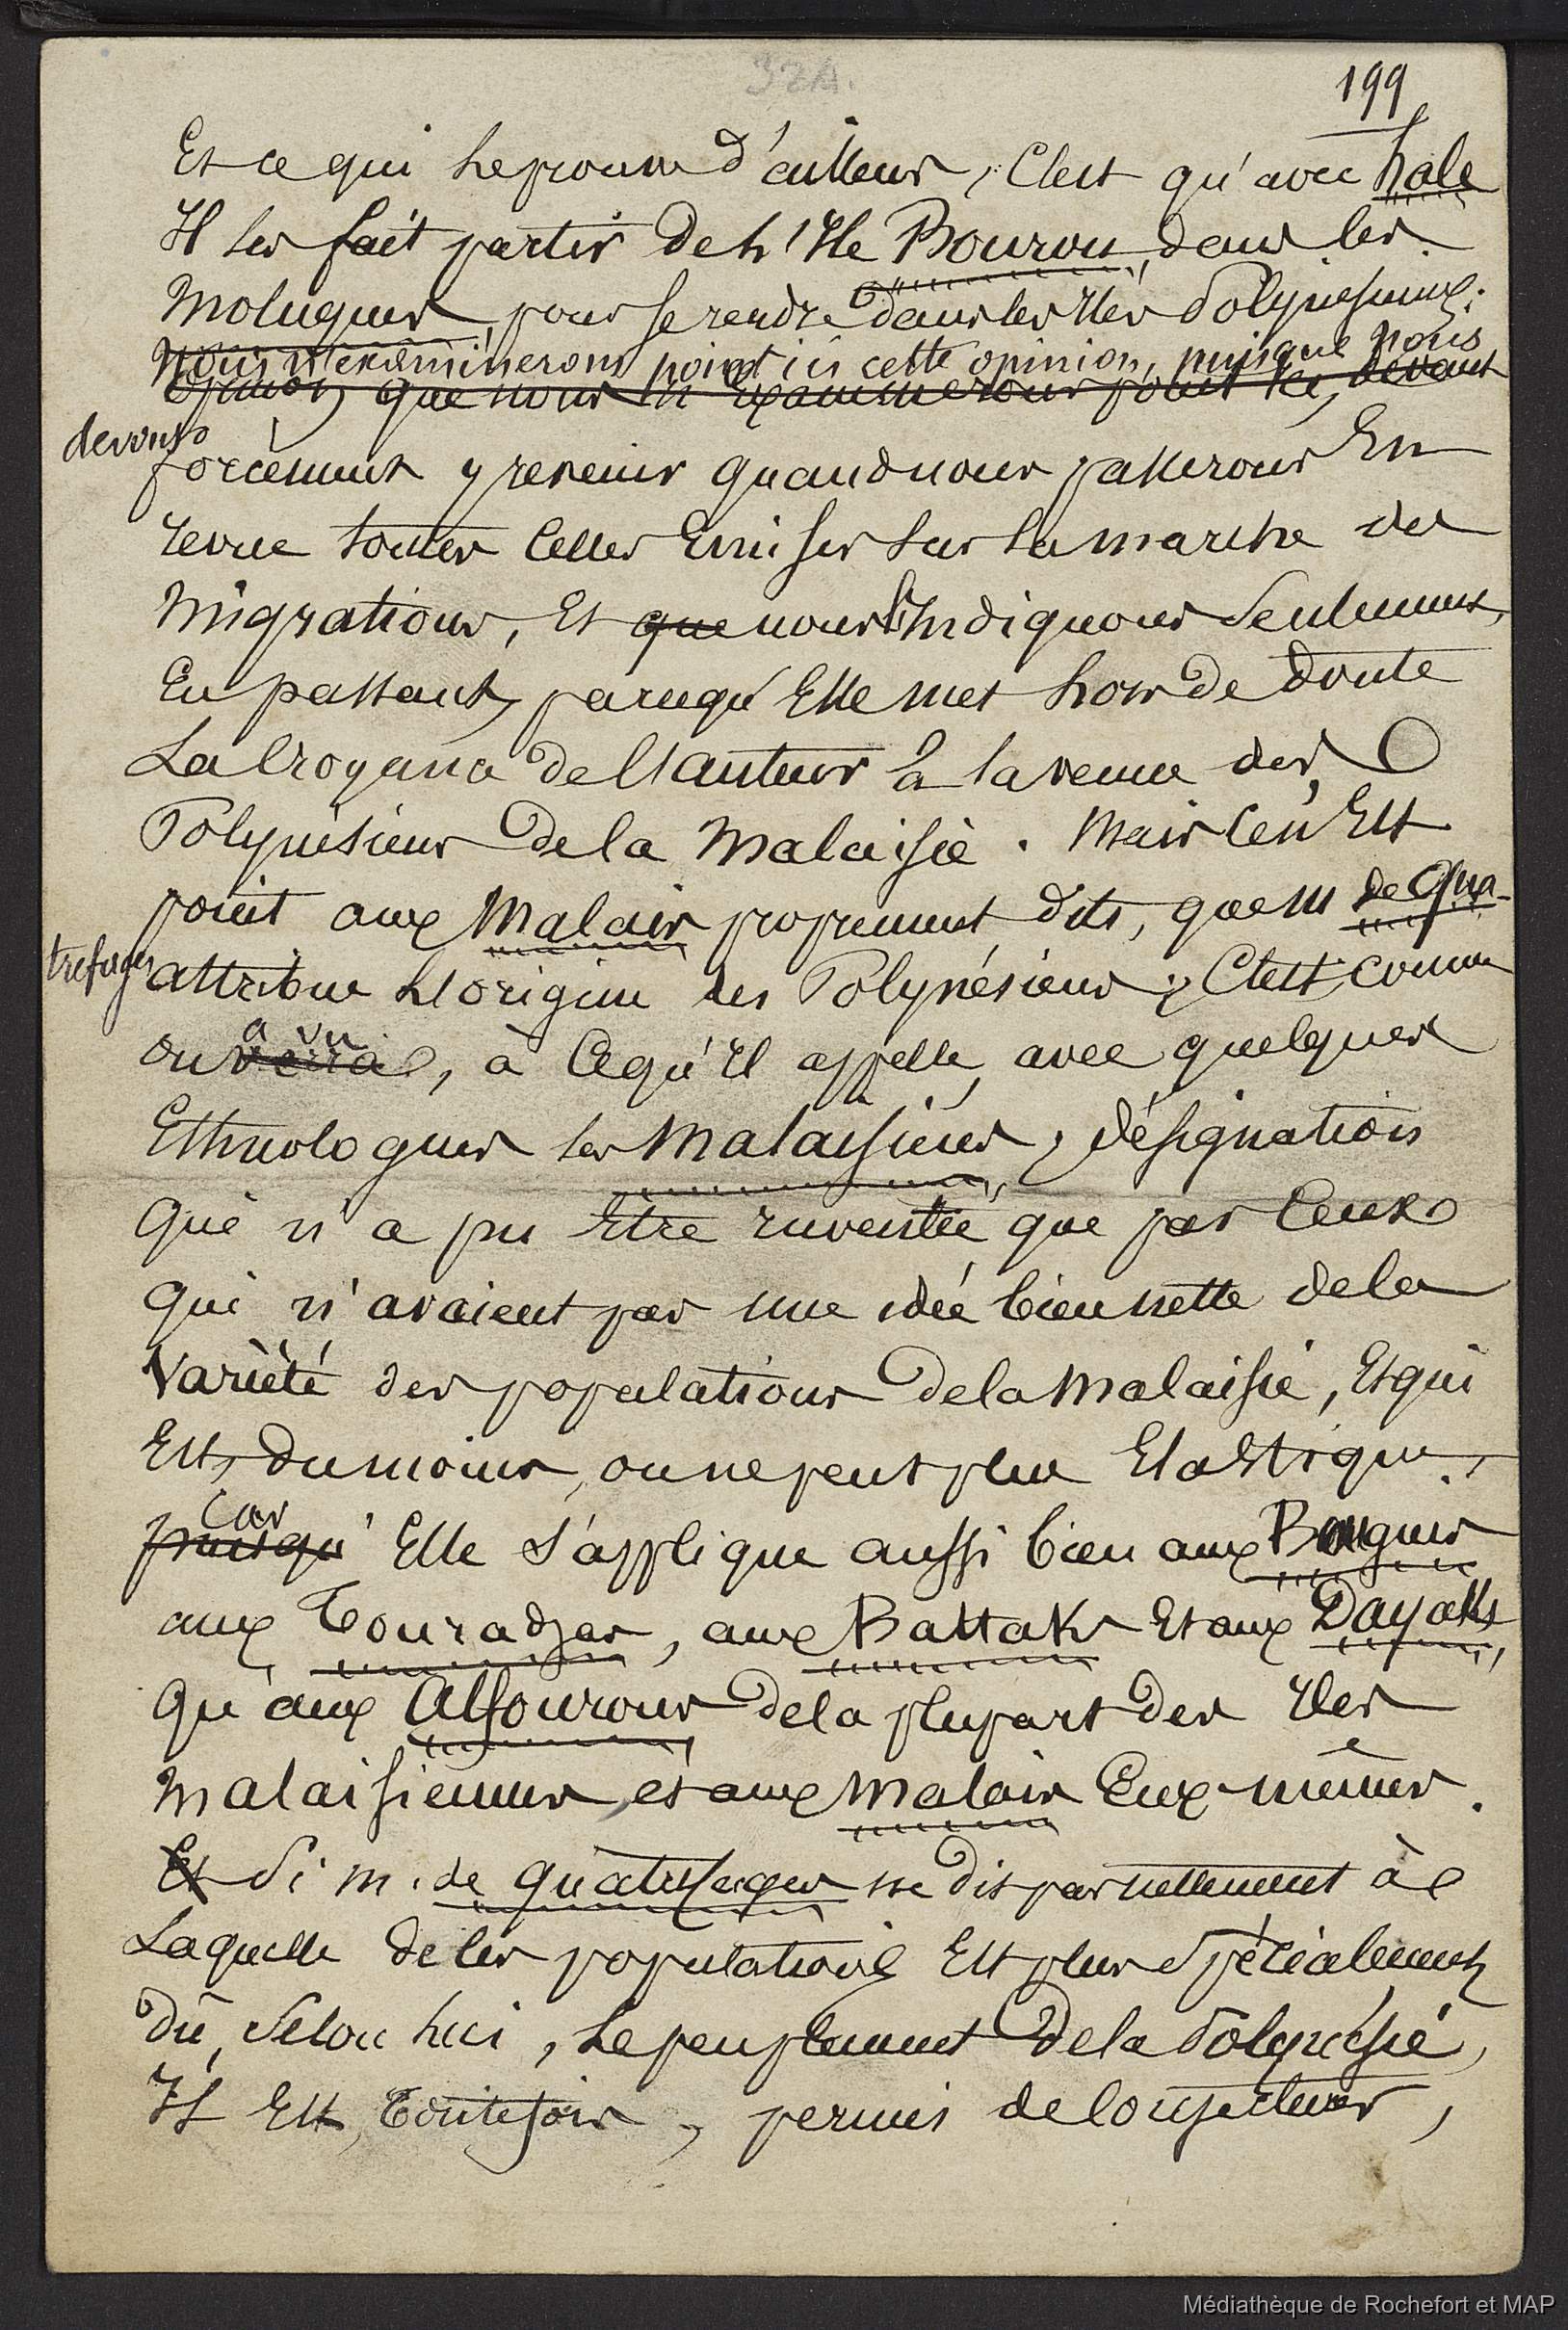 32A.
199
Et ce qui le prouve d'ailleurs, c'est qu'avec hale
Il les fait partir de l'Ile Bourou, dans les
Moluques, pour se rendre dans les Iles Polynésiennes;
Nous n'examinerons point ici cette opinion, puisque nous
opinion que nous n'examinerons point ici, devant
devons
forcément y revenir quand nous passerons En
revue toutes celles Emises sur la marche des
Migrations, Et que nous l'Indiquons Seulement,
En passant, parcequ'Elle met hors de doute
La Croyance de l'auteur à la venue des
Polynésiens de la Malaisie. Mais ce n'Est
point aux Malais proprement dits, que M de Qua-
trefages attribue l'origine des Polynésiens; C'est comme
on verra, à Cequ'Il appelle, avec quelques
a vu
Ethnologues les Malaisiens, désignation
Qui n'a pu Etre inventée que par Ceux
Qui n'avaient pas une idée bien nette de la
Variété des populations de la Malaisie, Et qui
Est, du moins, on ne peut plus Elastique,
puisqu'Elle S'applique aussi bien aux Bouguis
Car
aux Touradjas, aux Battaks Et aux Dayaks,
Qu'aux Alfourous de la plupart des Iles
Malaisiennes, et aux Malais Eux-mêmes.
Et Si M. de Quatrefages ne dit pas nettement à
Laquelle de les populations Est plus Spécialement
dû, Selon lui, Le peuplement de la Polynésie,
Il Est, toutefois, permis de conjecturer,
Médiathèque de Rochefort et MAP